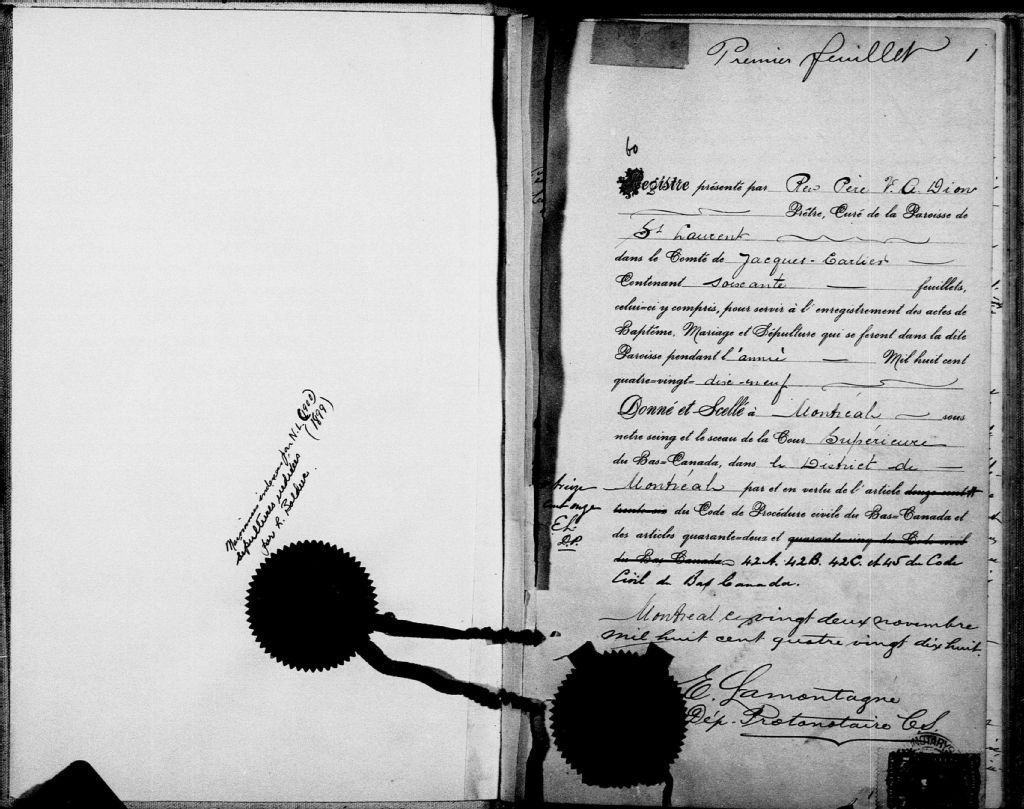 par N.L. (1900)
(1899)
Sépultures vérifiées
par R. Balduc.
Premier feuillet 1
60
Registre présenté par Rev Père V. A. Dion
Prêtre, Curé de la Paroisse de
St Laurent
dans le Comté de Jacques-Cartier
Contenant soixante feuillets,
celui-ci y compris, pour servir à l'enregistrement des actes de
Baptême, Mariage et Sépulture qui se feront dans la dite
Paroisse pendant l'année Mil huit cent
quatre-vingt-dix-neuf
Donné et Scellé à Montréal sous
notre seing et le sceau de la Cour Supérieure
du Bas-Canada, dans le District de
Montréal par et en vertu de l'article douze cent
treize
cent onze
E.L.
D.P.
trente-six du Code de Procédure civile du Bas-Canada et
des articles quarante-deux et quarante-cinq du Code civil
du Bas Canada 42A. 42B. 42C. et 45 du Code
Civil du Bas Canada.
Montreal ce vingt deux novembre
mil huit cent quatre vingt dix huit.
E. Lamontagne
Dép. Protonotaire C.S.
NOTARY